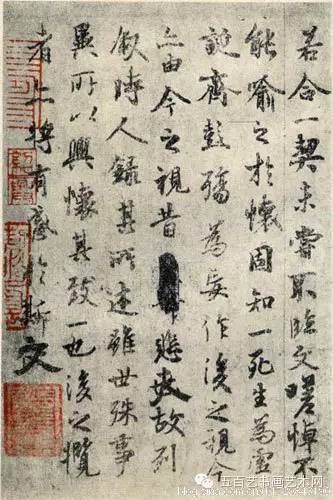 若合一契未嘗不臨文嗟悼不
能喻之於懷固知一死生為虛
誕齊彭殤為妄作後之視今
亦由今之視昔悲夫故列
叙時人錄其所述雖世殊事
異所以興懷其致一也後之攬
者亦將有感於斯文
五百艺书画艺术网